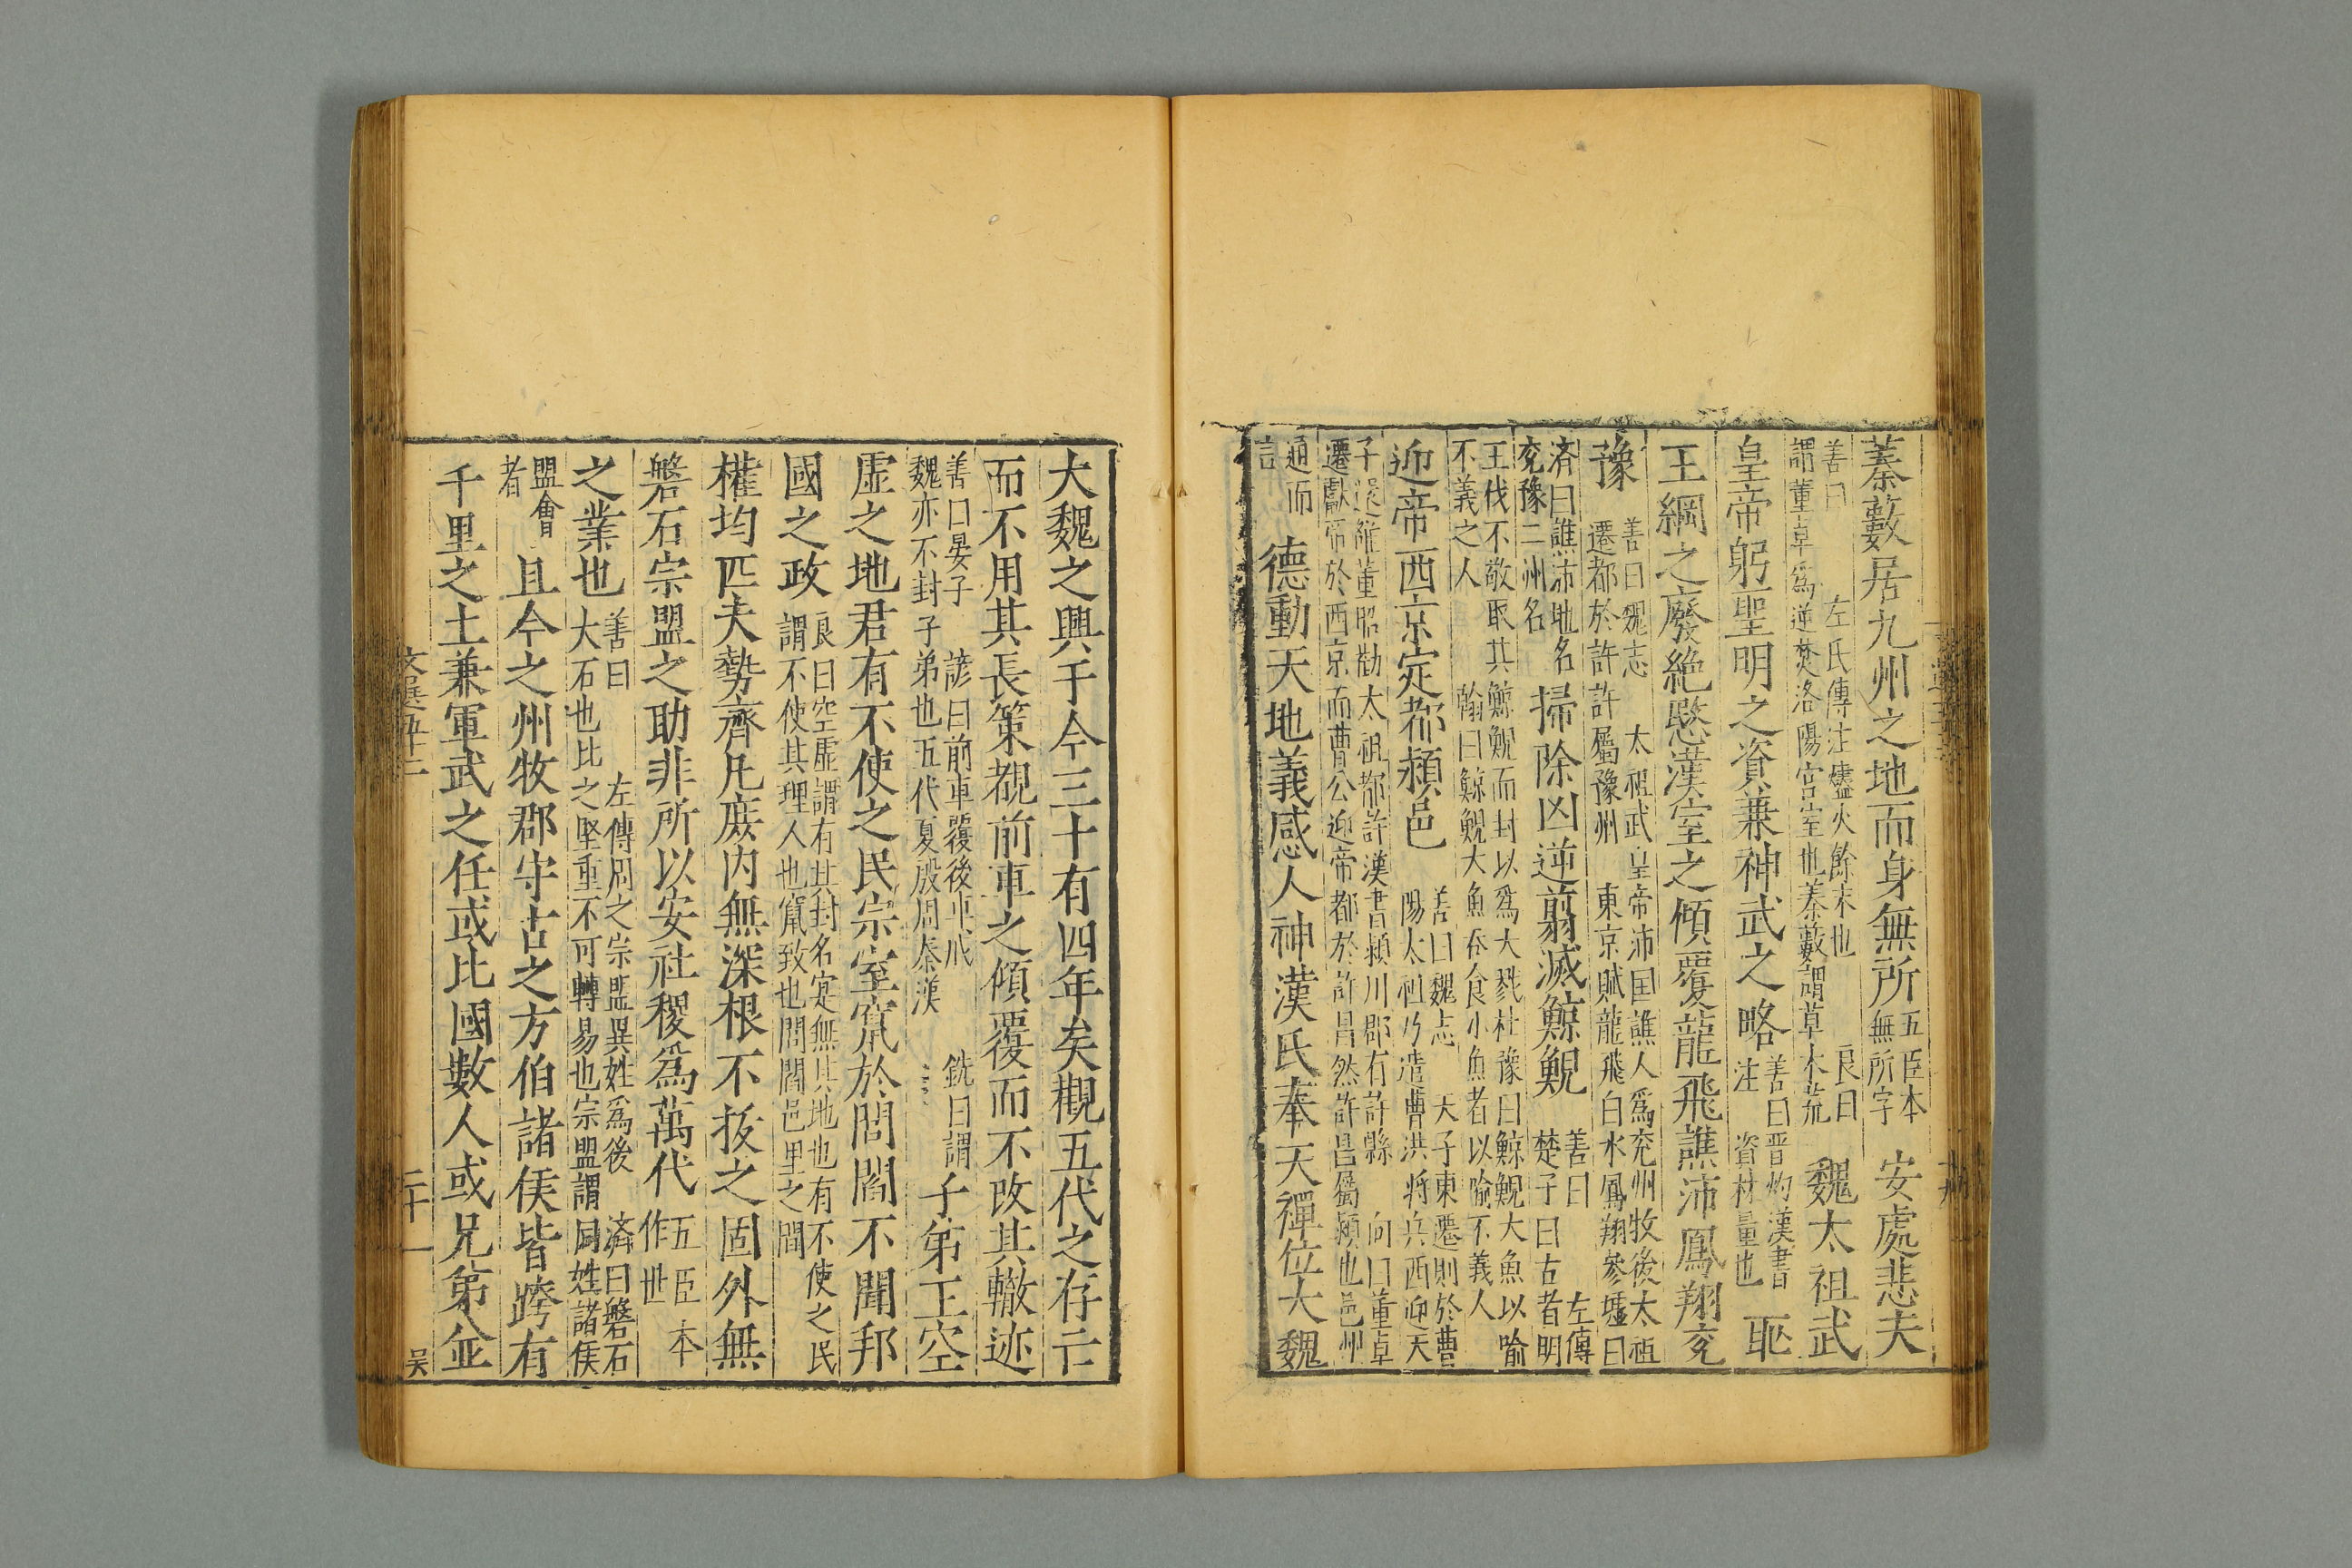 蓁藪居九州之地而身無所五臣本無所字安處悲夫
善曰左氏傳注燼火餘末也良曰謂董卓爲逆焚洛陽宮室也蓁藪謂草木荒魏太祖武
皇帝躬聖明之資兼神武之略善曰晋灼漢書注資材量也恥
王綱之廢絶愍漢室之傾覆龍飛譙沛鳳翔兖
豫善曰魏志太祖武皇帝沛国譙人爲兖州牧後太祖遷都於許許屬豫州東京賦龍飛白水鳳翔參墟曰
済曰譙沛地名兖豫二州名掃除凶逆翦滅鯨鯢善曰左傳楚子曰古者明
王伐不敬取其鯨鯢而封以爲大戮杜豫曰鯨鯢大魚以喻不義之人翰曰鯨鯢大魚吞食小魚者以喻不義人
迎帝西京定都頴邑善曰魏志天子東遷則於曹陽太祖乃遣曹洪將兵西迎天
子還雒董昭勸太祖都許漢書頴川郡有許縣向曰董卓遷獻帝於西京而曹公迎帝都於許昌然許昌屬頴也邑州
通而言德動天地義感人神漢氏奉天禪位大魏
大魏之興于今三十有四年矣觀五代之存亡
而不用其長策覩前車之傾覆而不改其轍迹
善曰晏子諺曰前車覆後車戒銑曰謂魏亦不封子弟也五代夏殷周秦漢子弟王空
虛之地君有不使之民宗室竄於閭閻不聞邦
國之政良曰空虛謂有其封名定無其地也有不使之民謂不使其理人也竄致也閭閻邑里之間
權均匹夫勢齊凡庻内無深根不拔之固外無
磐石宗盟之助非所以安社稷爲萬代五臣本作世
之業也善曰左傳周之宗盟異姓爲後済曰磐石大石也比之堅重不可轉易也宗盟謂同姓諸侯
盟會者且今之州牧郡守古之方伯諸侯皆跨有
千里之土兼軍武之任或比國數人或兄弟並
文選五十二
二十一
吴